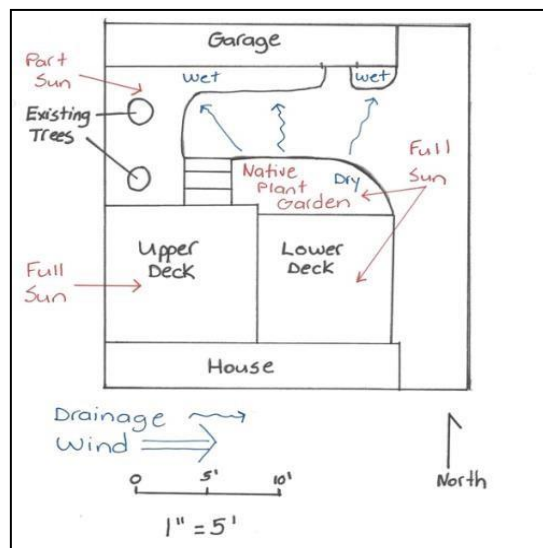 Garage
Part
Sun
wet
wet
Existing
Trees
Full
Sun
Native
Plant
Garden
Dry
Upper
Deck
Lower
Deck
Full
Sun
House
Drainage
Wind
0 5' 10'
1" = 5'
North